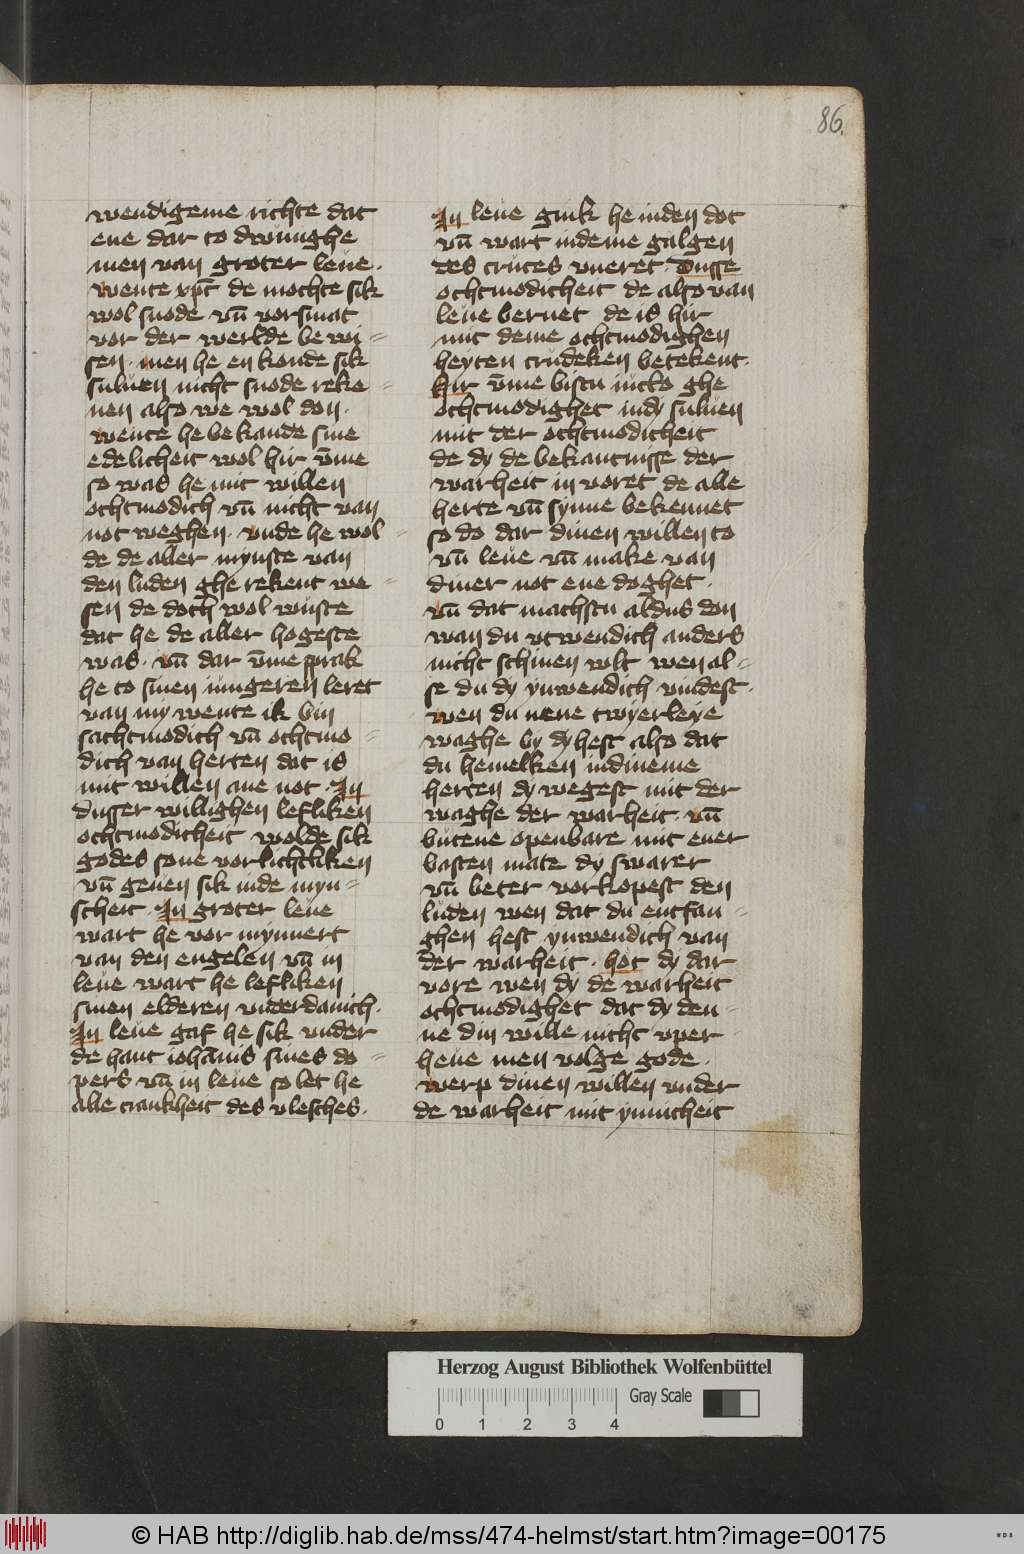 86.
wendigeme richte dat
ene dar to drunghe
men van groter leue·
wente xp̄c de mochte sik
wol snode vn̄ vorsmat
vor der werlde be wi=
sen· men he en konde sik
suluen nicht snode reke=
nen also we wol don·
wente he bekande sine
edelicheit wol hir v̄me
so was he mit willen
ochtmodich vn̄ nicht van
not weghen· vnde he wol=
de de aller mynste van
den luden ghe rekent we=
sen de doch wol wuste
dat he de aller hogeste
was· vn̄ dar v̄me sprak
he to sinen iungeren leret
van my wente ik bin
sachtmodich vn̄ ochtmo=
dich van herten dat is
mit willen ane not· In
dusser willighen lefliken
ochtmodicheit wolde sik
godes sone vorlichtliken
vn̄ geuen sik inde myn=
scheit· In groter leue
wart he vor mynnert
van den engelen vn̄ in
leue wart he lefliken
sinen elderen vnderdanich·
In leue gaf he sik vnder
de hant iohānis sines do=
pers vn̄ in leue so let he
alle crankheit des vlesches·
In leue gink he inden dot
vn̄ wart indeme galgen
des cruces vneret· Dusse
ochtmodicheit de also van
leue bernet de is hir
mit deme ochtmodighen
heyten crudeken betekent·
hir v̄me bistu nicko ghe
ochtmodighet indy suluen
mit der ochtmodicheit
de dy de bekantnisse der
warheit in voret de alle
herte vn̄ synne bekennet
so do dar dinen willen to
vn̄ leue vn̄ make van
diner not ene doghet·
vn̄ dat machstu aldus don
wan du vtwendich anders
nicht schinen wlt wen al=
se du dy ynwendich vindest·
wen du nene twyerleye
waghe by dy hest also dat
du hemelken indineme
herten dy wegest mit der
waghe der warheit· vn̄
butene openbare mit ener
vasten mate dy swarer
vn̄ beter vorkopest den
luden wen dat du entfan=
ghen hest ynwendich van
der warheit· hot dy dar
vore wen dy de warheit
ochtmodighet dat dy den=
ne din wille nicht vper
heue men volge gode·
werp dinen willen vnder
de warheit mit ynnicheit
Herzog August Bibliothek Wolfenbüttel
0 1 2 3 4 Gray Scale
© HAB http://diglib.hab.de/mss/474-helmst/start.htm?image=00175